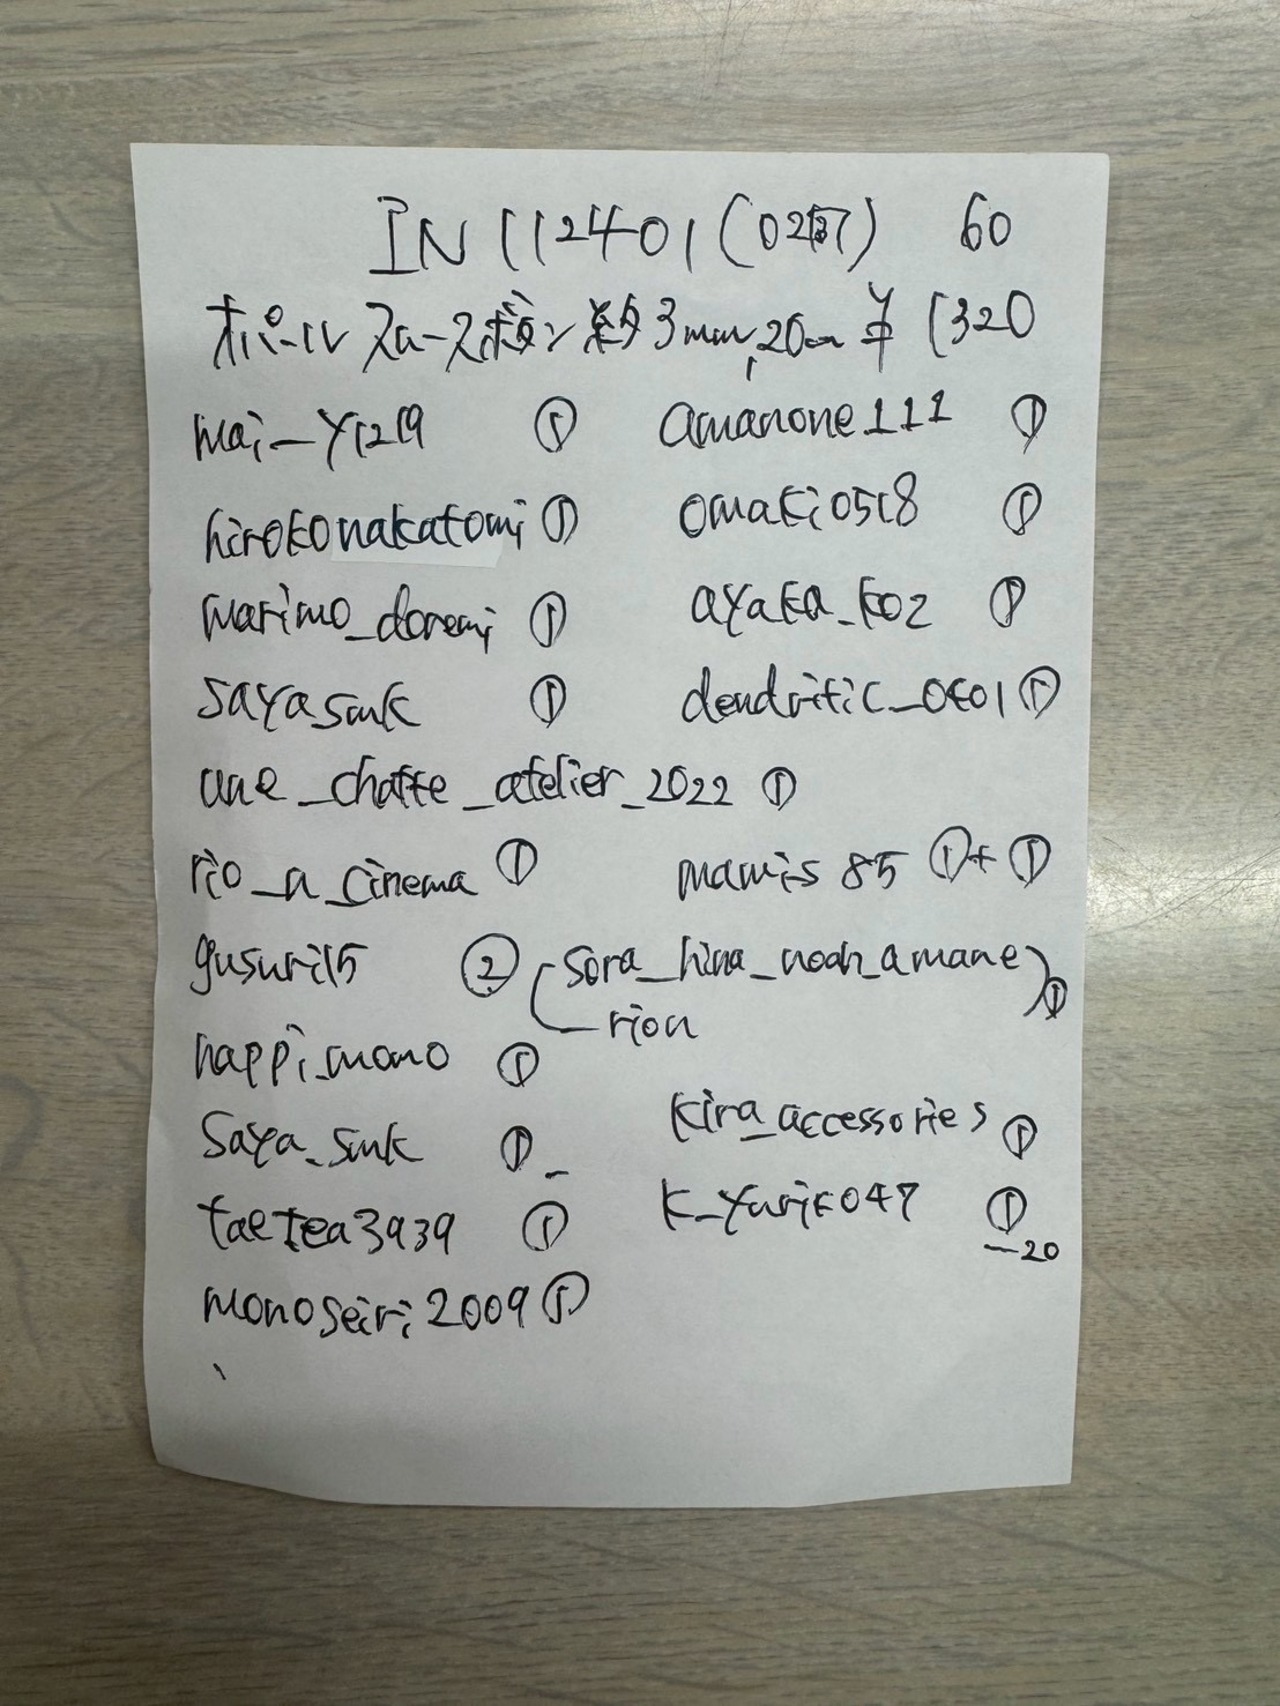 IN112401(0237) 60
オパール スムースボタン 約3mm, 20cm ¥1320
mai_y1219 ① amanone111 ①
hirokonakatomi ① omaki0518 ①
marimo_doremi ① ayaka_k02 ①
sayasmk ① dendritic_0401 ①
une_chatte_atelier_2022 ①
rio_a_cinema ① mamis85 ①+①
gusuri15 ② (sora_hina_noah_amane
_rion) ①
happi_mono ①
kira_accessories ①
saya_smk ①
k_yuriko047 ①
taetea3939 ①
-20
monoseiri2009 ①